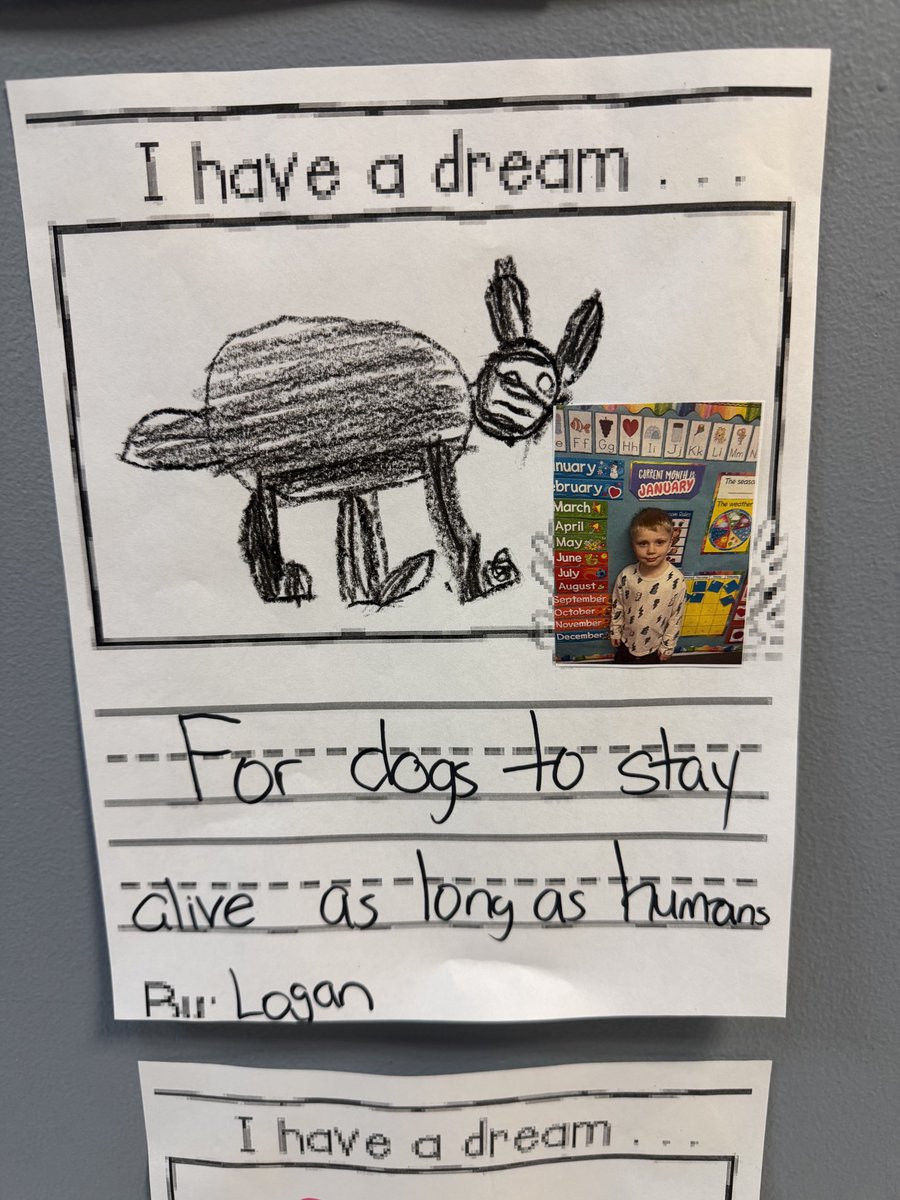 I have a dream . . .
Ff Gg Hh Ii Jj Kk Ll Mm N
CURRENT MONTH IS
JANUARY
The weather
March
April
May
June
July
August
September
October
November
December
For dogs to stay
alive as long as humans
By: Logan
I have a dream . . .